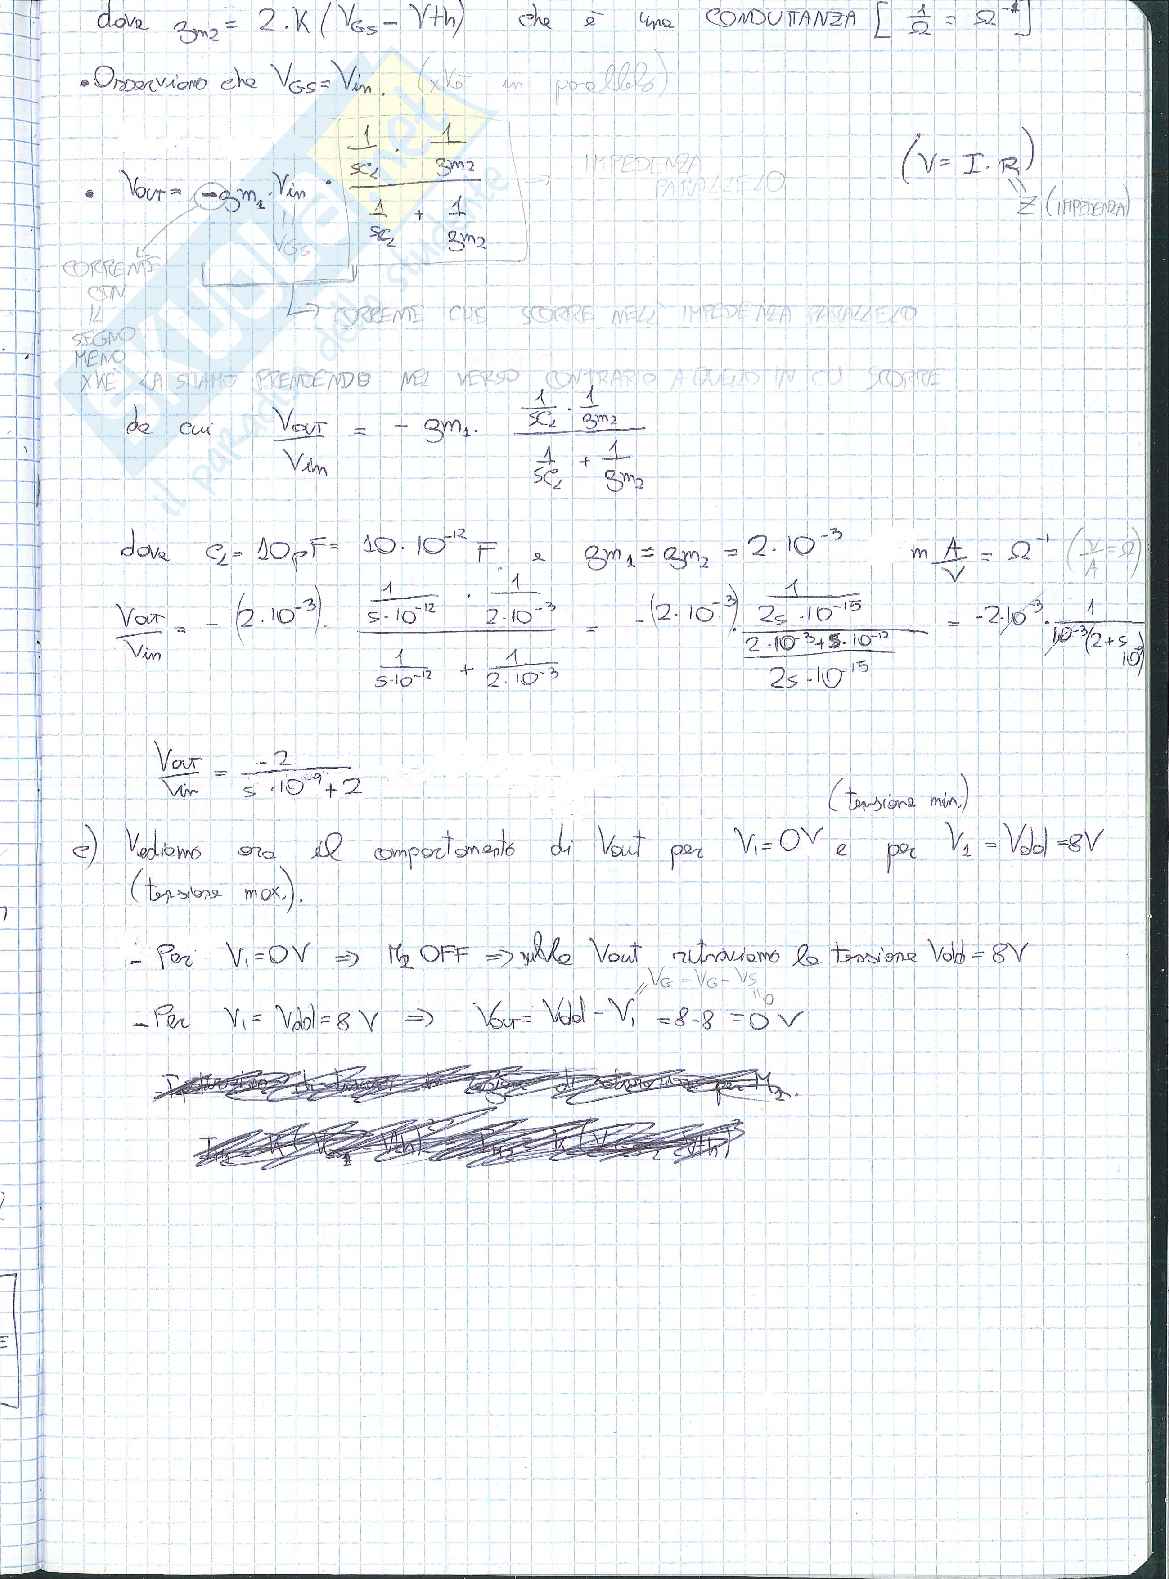 dove gm2 = 2·K(VGS − Vth) che è una CONDUTTANZA [1/Ω = Ω^-1]
• Osserviamo che VGS = Vin. (xkè in parallelo)
• Vout = −gm1·Vin · (1/sC2 · 1/gm2)/(1/sC2 + 1/gm2)
VGS
IMPEDENZA
PARALLELO
(V = I·R)
Z (IMPEDENZA)
CORRENTE
CON
IL
SEGNO
MENO
XKÈ LA STIAMO PRENDENDO NEL VERSO CONTRARIO A QUELLO IN CUI SCORRE
CORRENTE CHE SCORRE NELL'IMPEDENZA PARALLELO
da cui Vout/Vin = − gm1 · (1/sC2 · 1/gm2)/(1/sC2 + 1/gm2)
dove C2 = 10pF = 10·10^-12 F e gm1 = gm2 = 2·10^-3 m A/V = Ω^-1 (V/A = Ω)
Vout/Vin = −(2·10^-3) · (1/(s·10^-12) · 1/(2·10^-3))/(1/(s·10^-12) + 1/(2·10^-3)) = −(2·10^-3) · (1/(2s·10^-15))/((2·10^-3+s·10^-12)/(2s·10^-15)) = −2·10^-3 · 1/(10^-3(2+s 10^-9))
Vout/Vin = −2/(s·10^-9+2)
(tensione min.)
e) Vediamo ora il comportamento di Vout per V1 = 0V e per V1 = Vdd = 8V
(tensione max.).
– Per V1 = 0V ⇒ M2 OFF ⇒ sulla Vout ritroviamo la tensione Vdd = 8V
VG = VG − VS
0
– Per V1 = Vdd = 8V ⇒ Vout = Vdd − V1 = 8−8 = 0V
il paradiso dello studente
SKUOLA.net